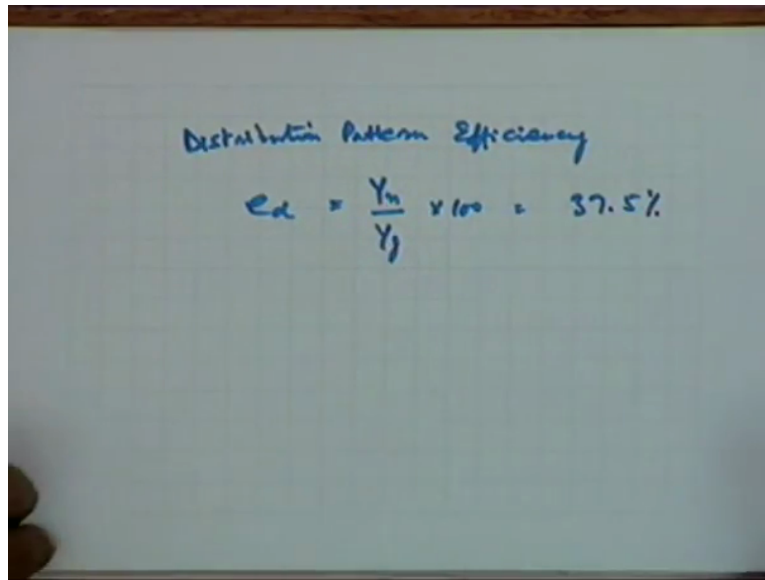 Distribution Pattern Efficiency
ed = Yn/Yg × 100 = 37.5%